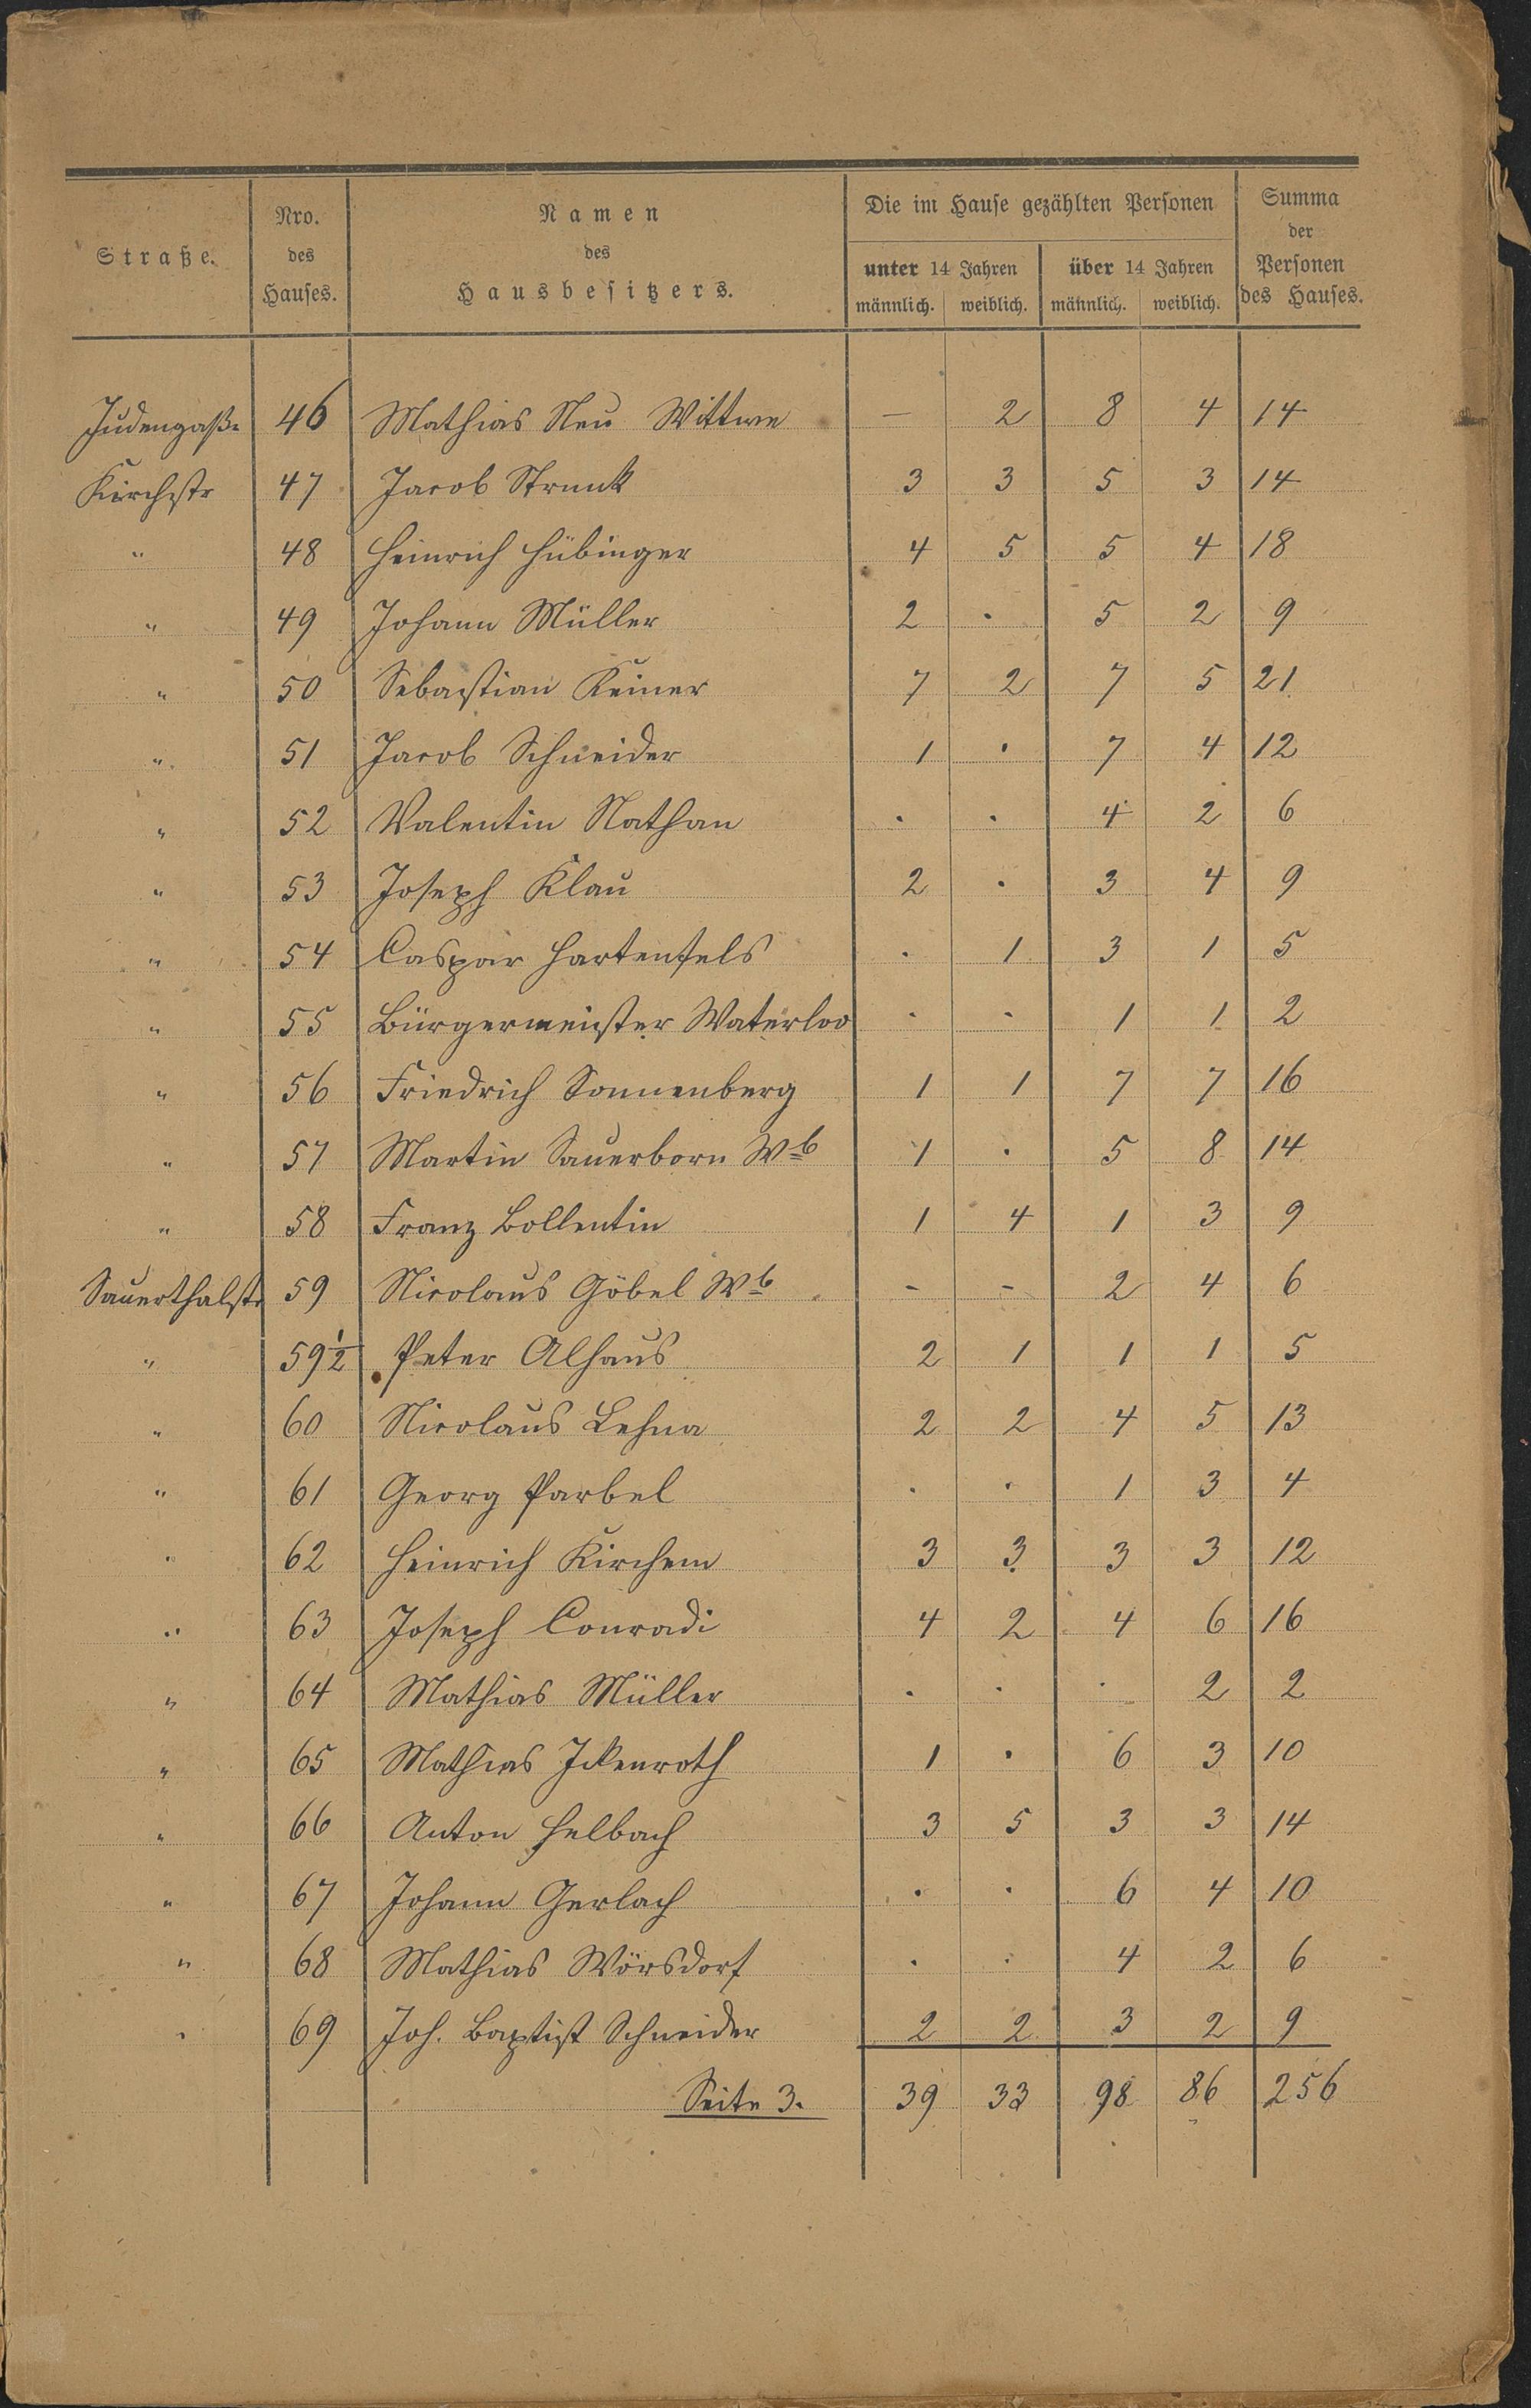 Straße. Nro. des Hauses. Namen des Hausbesitzers. Die im Hause gezählten Personen Summa der Personen des Hauses.
unter 14 Jahren über 14 Jahren
männlich. weiblich. männlich. weiblich.
Judengaße 46 Mathias Neu Wittwe — 2 8 4 14
Kirchstr 47 Jacob Strunk 3 3 5 3 14
" 48 Heinrich Hübinger 4 5 5 4 18
" 49 Johann Müller 2 . 5 2 9
" 50 Sebastian Keiner 7 2 7 5 21
" 51 Jacob Schneider 1 . 7 4 12
" 52 Valentin Nathan . . 4 2 6
" 53 Joseph Klau 2 . 3 4 9
" 54 Caspar Hartenfels . 1 3 1 5
" 55 Bürgermeister Waterloo . . 1 1 2
" 56 Friedrich Sonnenberg 1 1 7 7 16
" 57 Martin Sauerborn Wb 1 . 5 8 14
" 58 Franz Bollentin 1 4 1 3 9
Sauerthalstr 59 Nicolaus Göbel Wb - - 2 4 6
" 59 1/2 Peter Alhaus 2 1 1 1 5
" 60 Nicolaus Lehna 2 2 4 5 13
" 61 Georg Parbel . . 1 3 4
" 62 Heinrich Kirchem 3 3 3 3 12
" 63 Joseph Conradi 4 2 4 6 16
" 64 Mathias Müller . . . 2 2
" 65 Mathias Ickenroth 1 . 6 3 10
" 66 Anton Helbach 3 5 3 3 14
" 67 Johann Gerlach . . 6 4 10
" 68 Mathias Wörsdorf . . 4 2 6
" 69 Joh. Baptist Schneider 2 2 3 2 9
Seite 3. 39 33 98 86 256